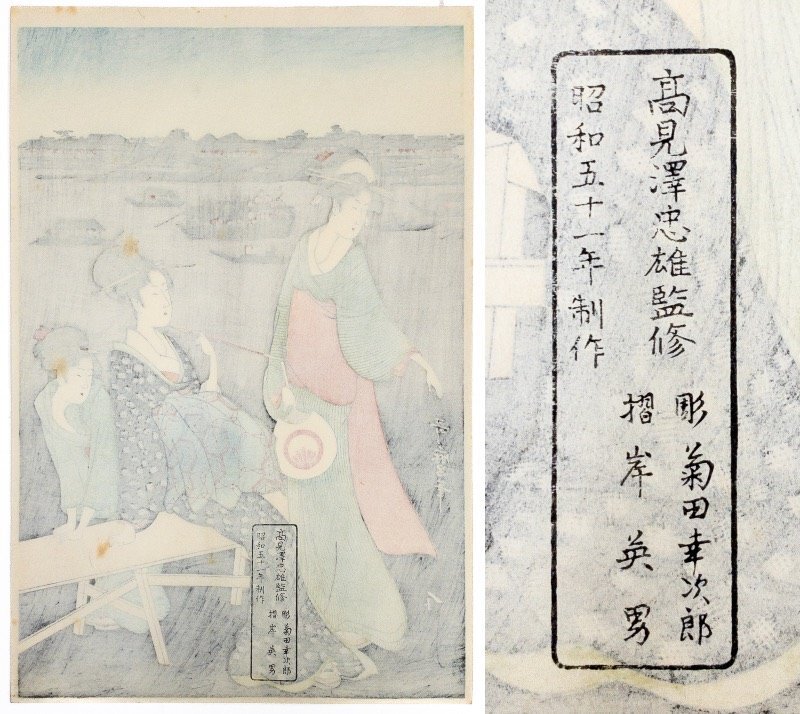 高見澤忠雄監修
彫 菊田幸次郎
摺 岸英男
昭和五十一年制作
高見澤忠雄監修
彫 菊田幸次郎
摺 岸英男
昭和五十一年制作